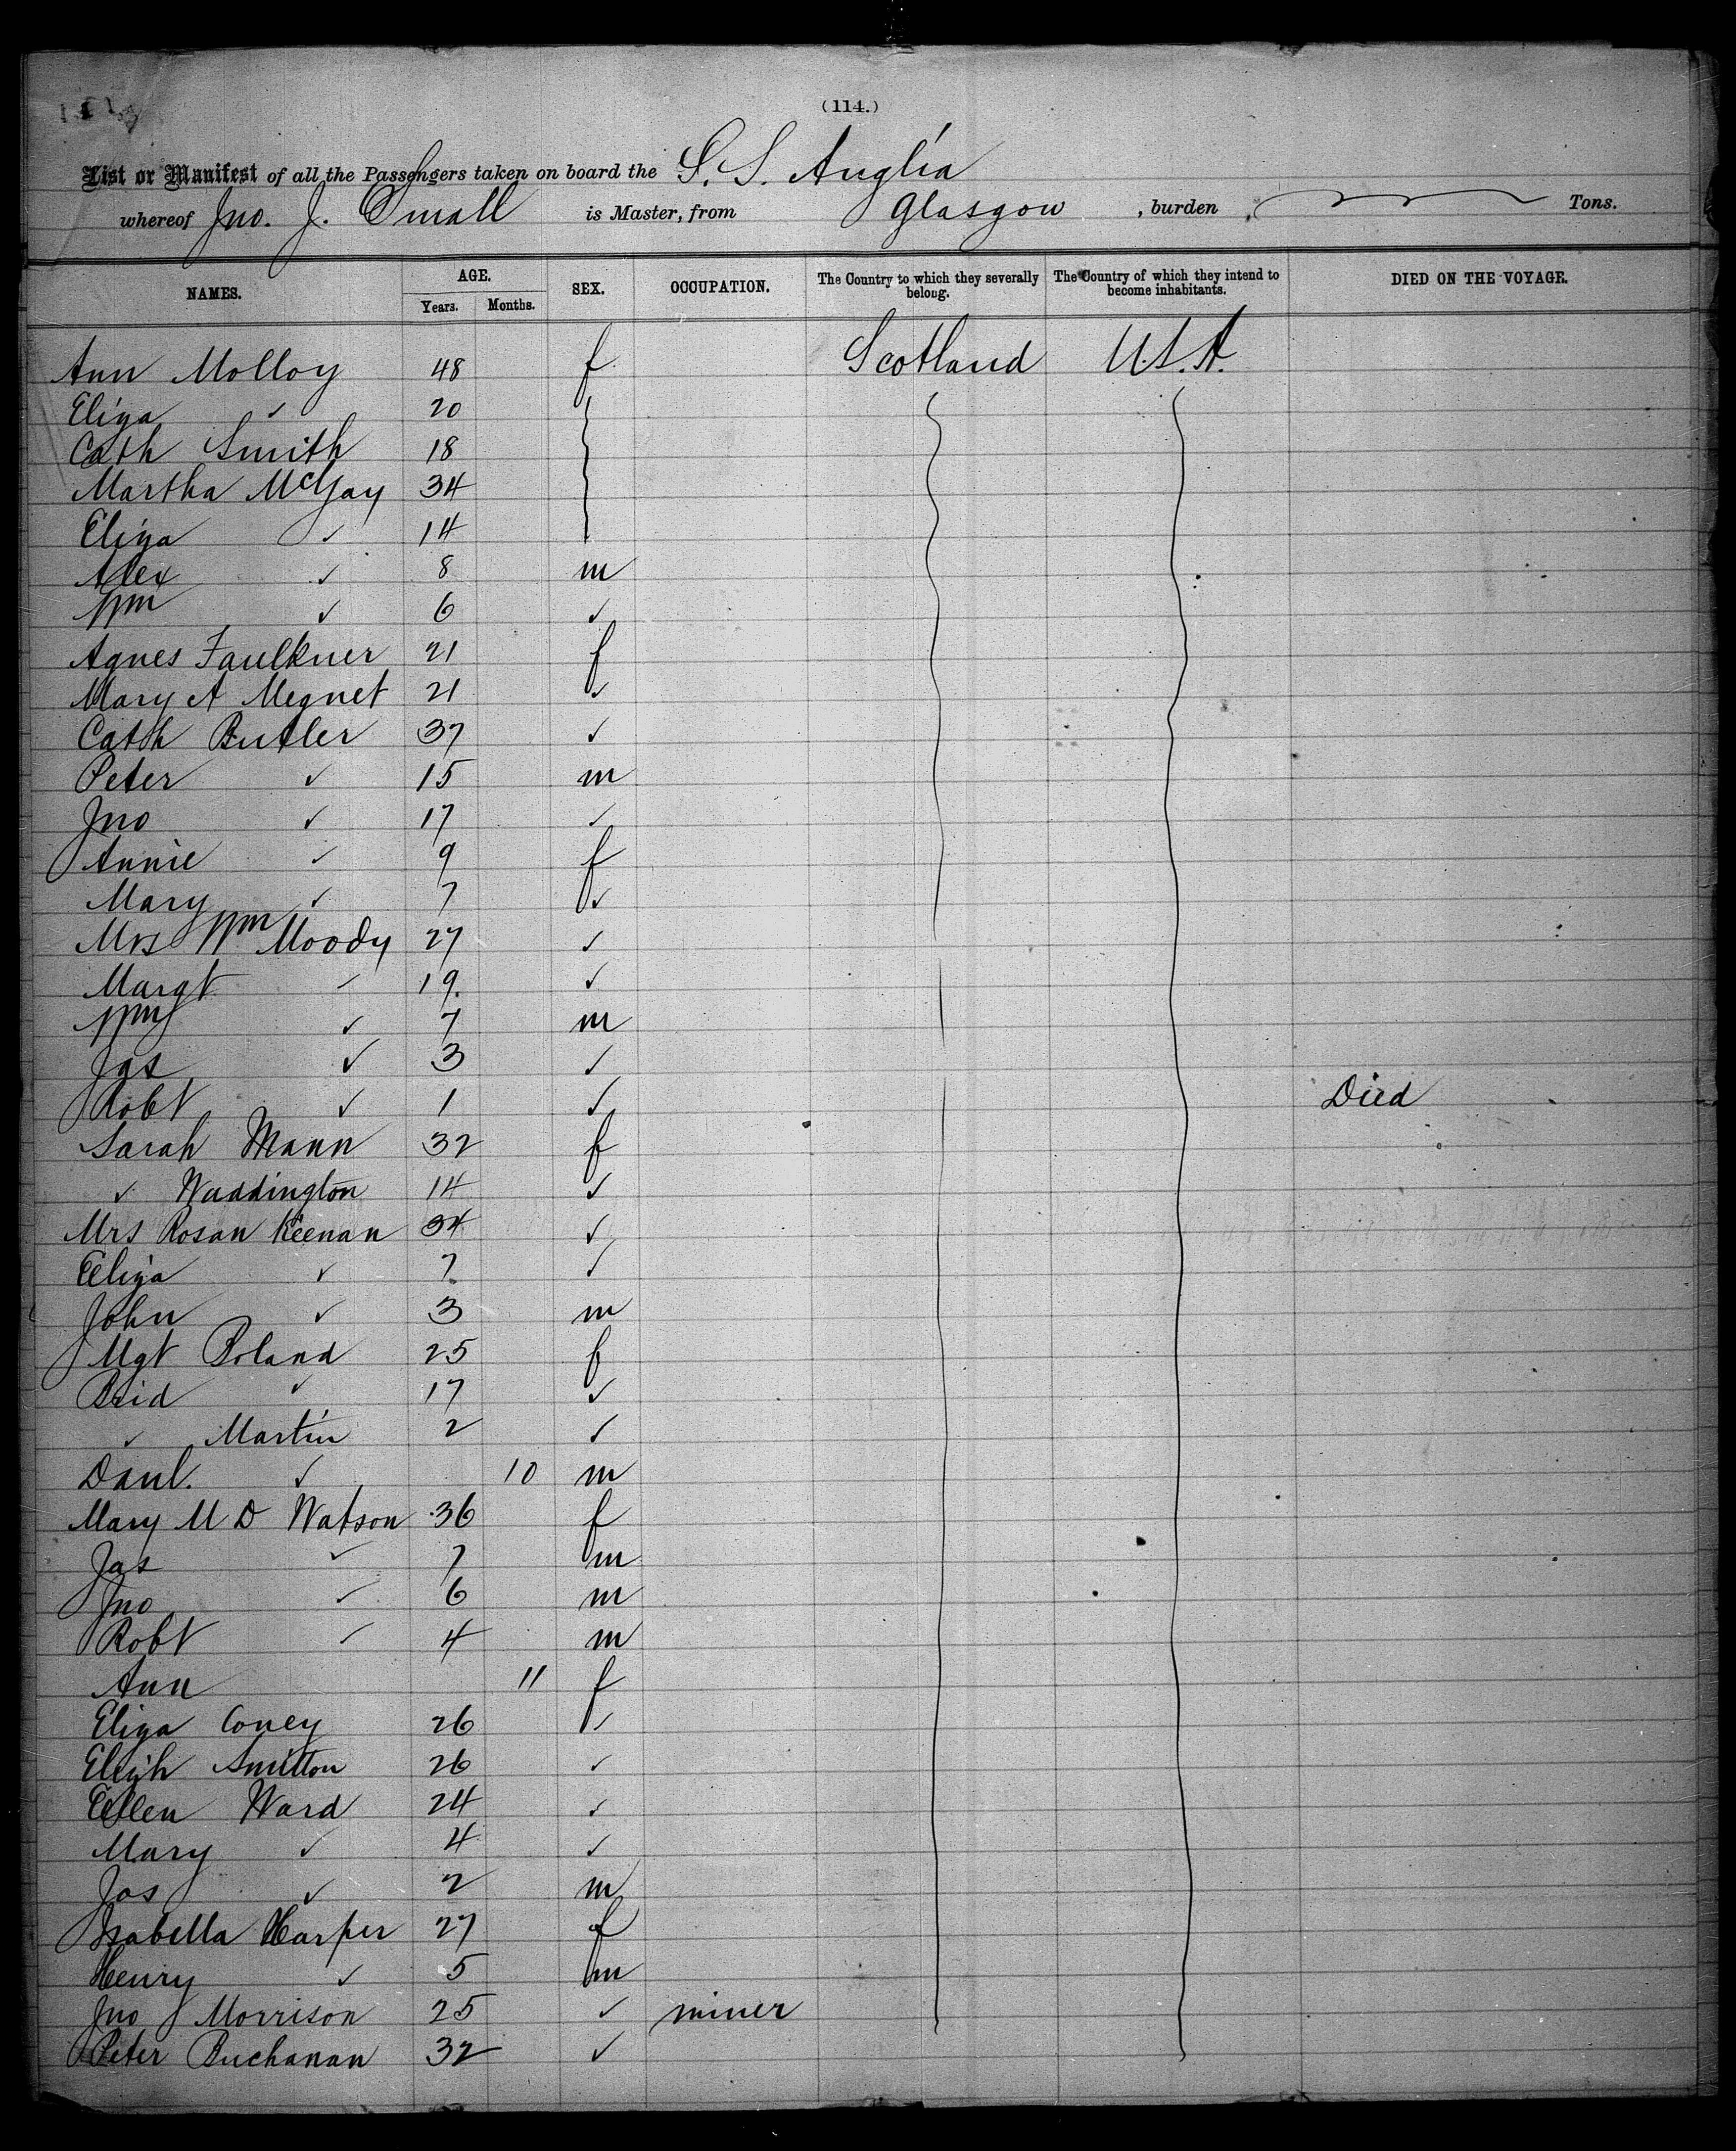 (114.)
List or Manifest of all the Passengers taken on board the S.S. Anglia
whereof Jno. J. Small is Master, from Glasgow, burden Tons.
NAMES. AGE. Years. Months. SEX. OCCUPATION. The Country to which they severally belong. The Country of which they intend to become inhabitants. DIED ON THE VOYAGE.
Ann Molloy 48 f Scotland U.S.A.
Eliza ✓ 20
Cath Smith 18
Martha McGay 34
Eliza ✓ 14
Alex ✓ 8 m
Wm ✓ 6 ✓
Agnes Faulkner 21 f
Mary A Megnet 21 ✓
Cath Butler 37 ✓
Peter ✓ 15 m
Jno ✓ 17 ✓
Annie ✓ 9 f
Mary ✓ 7 ✓
Mrs Wm Moody 27 ✓
Margt ✓ 19. ✓
Wm ✓ 7 m
Jas ✓ 3 ✓
Robt ✓ 1 ✓ Died
Sarah Mann 32 f
✓ Waddington 14 ✓
Mrs Rosan Keenan 34 ✓
Eliza ✓ 7 ✓
John ✓ 3 m
Mgt Boland 25 f
Brid ✓ 17 ✓
✓ Martin 2 ✓
Danl. ✓ 10 m
Mary M D Watson 36 f
Jas ✓ 7 m
Jno ✓ 6 m
Robt ✓ 4 m
Ann 11 f
Eliza Coney 26 ✓
Elizh Smitton 26 ✓
Ellen Ward 24 ✓
Mary ✓ 4 ✓
Jas ✓ 2 m
Isabella Harper 27 f
Henry ✓ 5 m
Jno Morrison 25 ✓ miner
Peter Buchanan 32 ✓